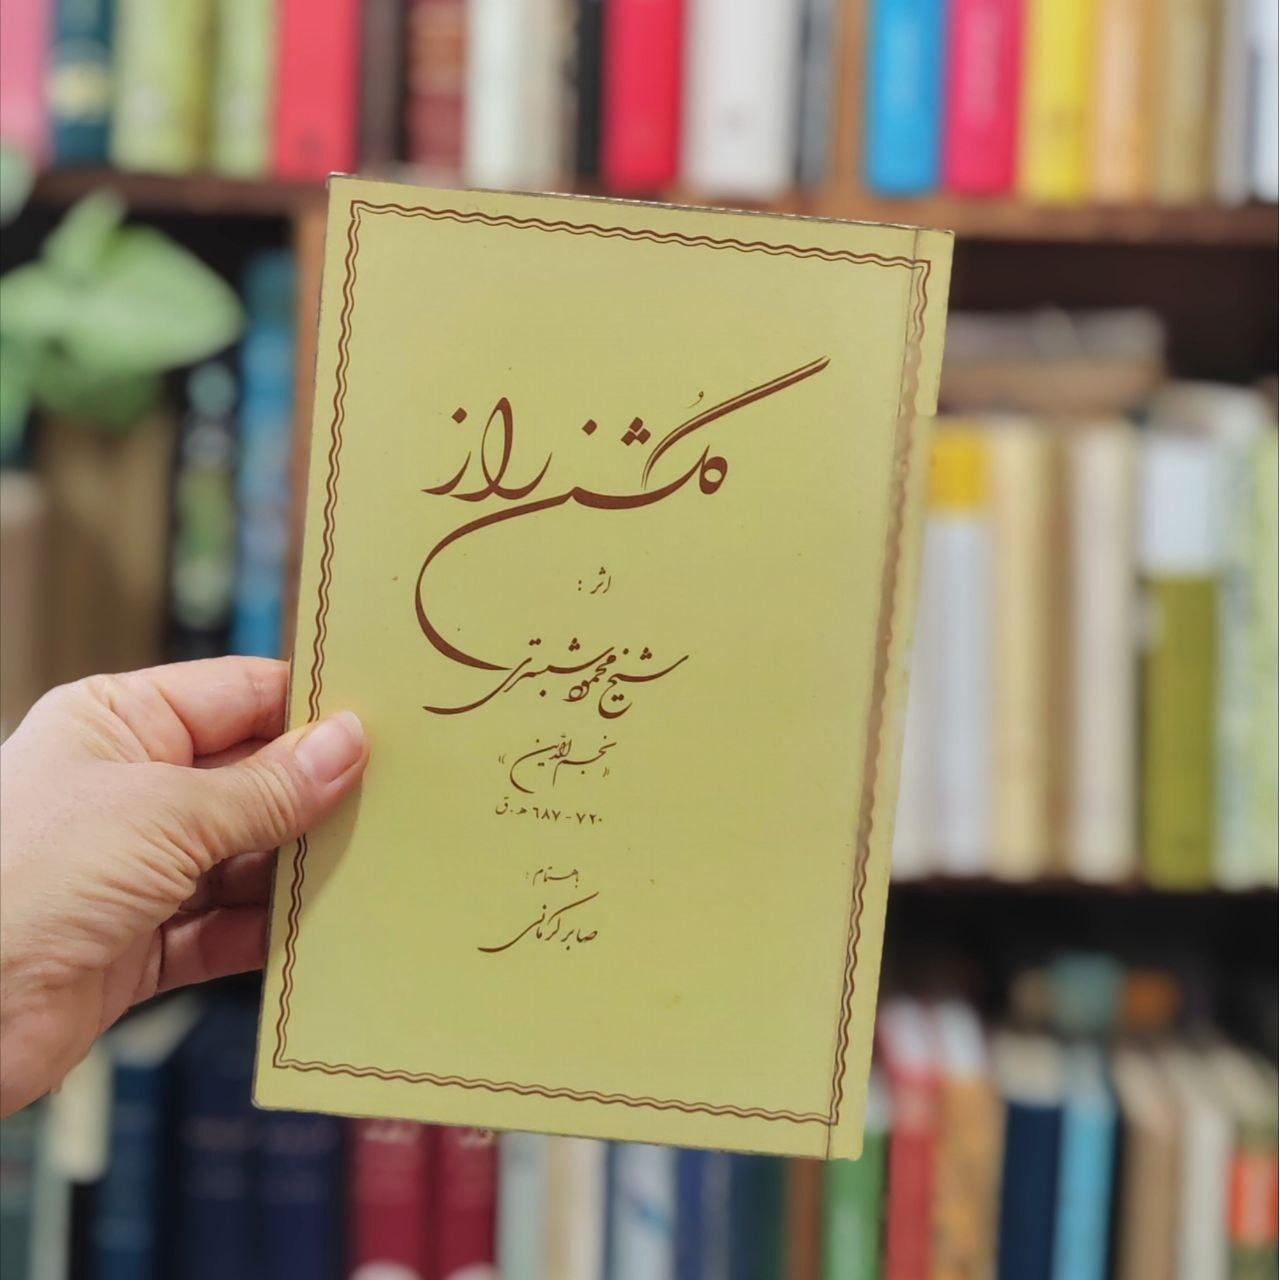 گلشن راز
اثر :
شیخ محمود شبستری
«نجم الدین»
٦٨٧ - ٧٢٠ ه.ق
باهتمام :
صابر کرمانی